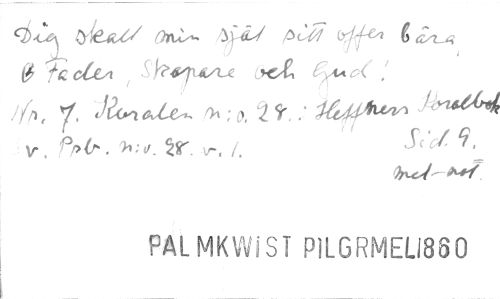 Dig skall min själ sitt offer bära,
O Fader, Skapare och Gud!
Nr. 7. Koralen n:o. 28. : Hæffners Koralbok
Sid. 9.
v. Psb. n:o. 28. v. 1.
met-not.
PALMKWiST PILGRMEL1860